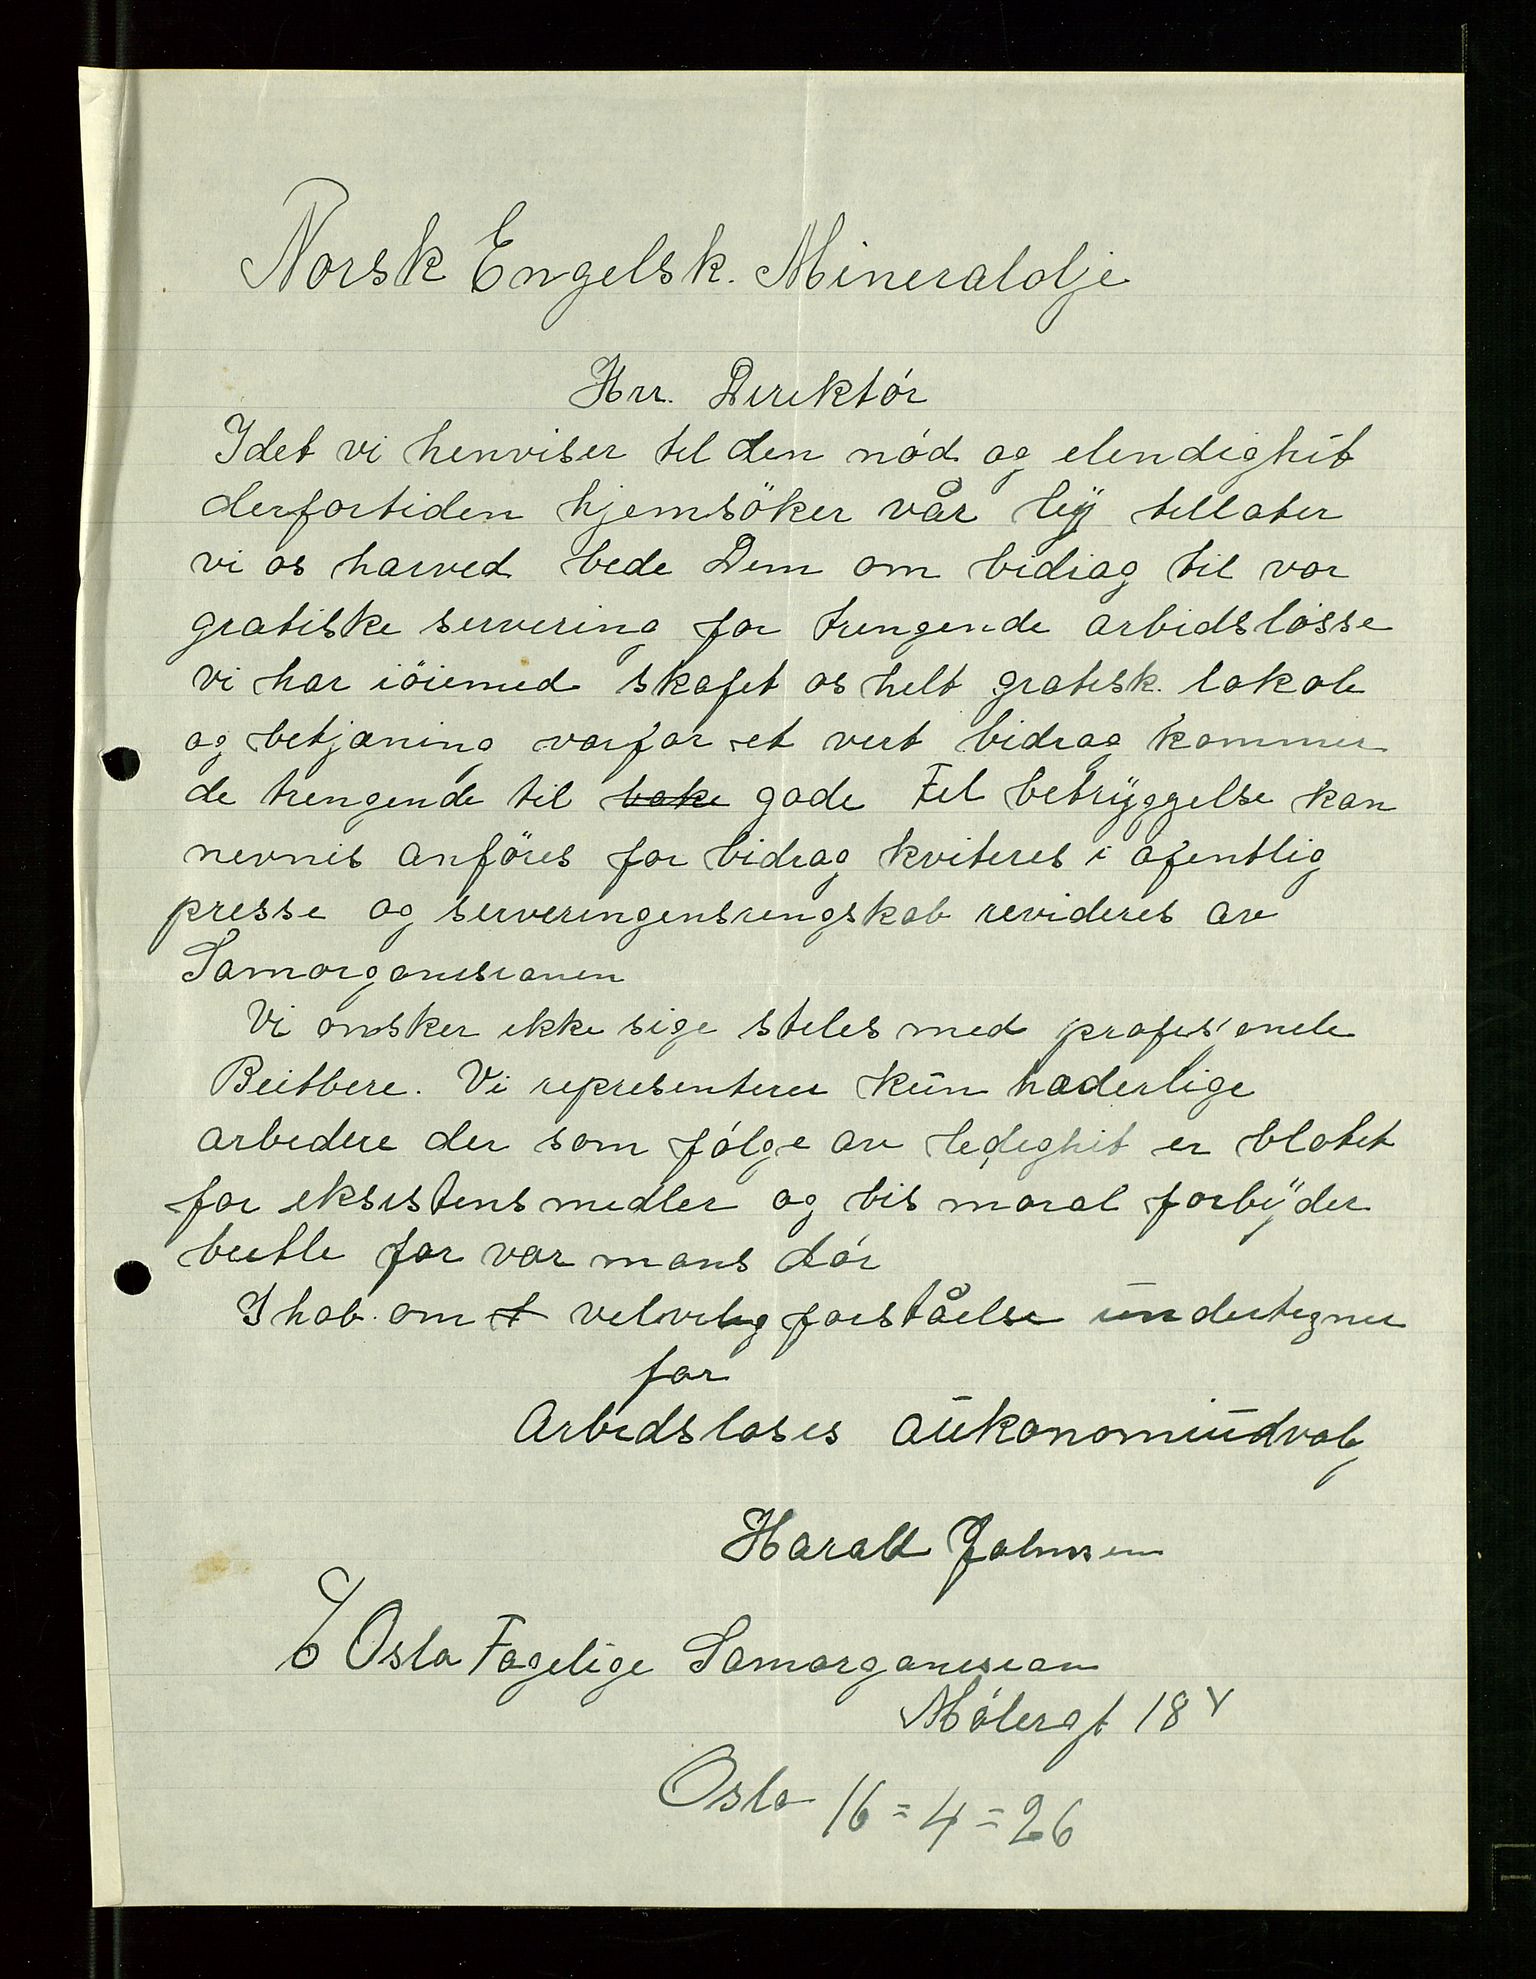 Norsk Engelsk. Mineralolje
Hrr. Direktór
Idet vi henviser til den nód og elendighet
derfortiden hjemsöker vår by tillater
vi os harved bede Dem om bidrag til vor
gratiske servering for trengende arbidslósse
vi har iöiemed skafet os helt gratisk. lokale
og betjæning varfor et vert bidrag kommer
de trengende til gode Tel betryggelse kan
nevnes anföres for bidrag kviteres i ofentlig
presse og serveringensrengskab revideres av
Samorganisianen
Vi onsker ikke sige steles med profesionele
Beitbere. Vi representerer kun hæderlige
arbedere der som fólge av ledeghet er blotet
for eksistensmedler og vis moral forbyder
beitle for vor mans dór
I hab. om velvilig forståelse undertegner
for
Arbedsloses aukonomiudvalg
Harald Johnsen
Oslo Fagelige Samorganesian
Mólergt 18 v
Oslo 16=4=26